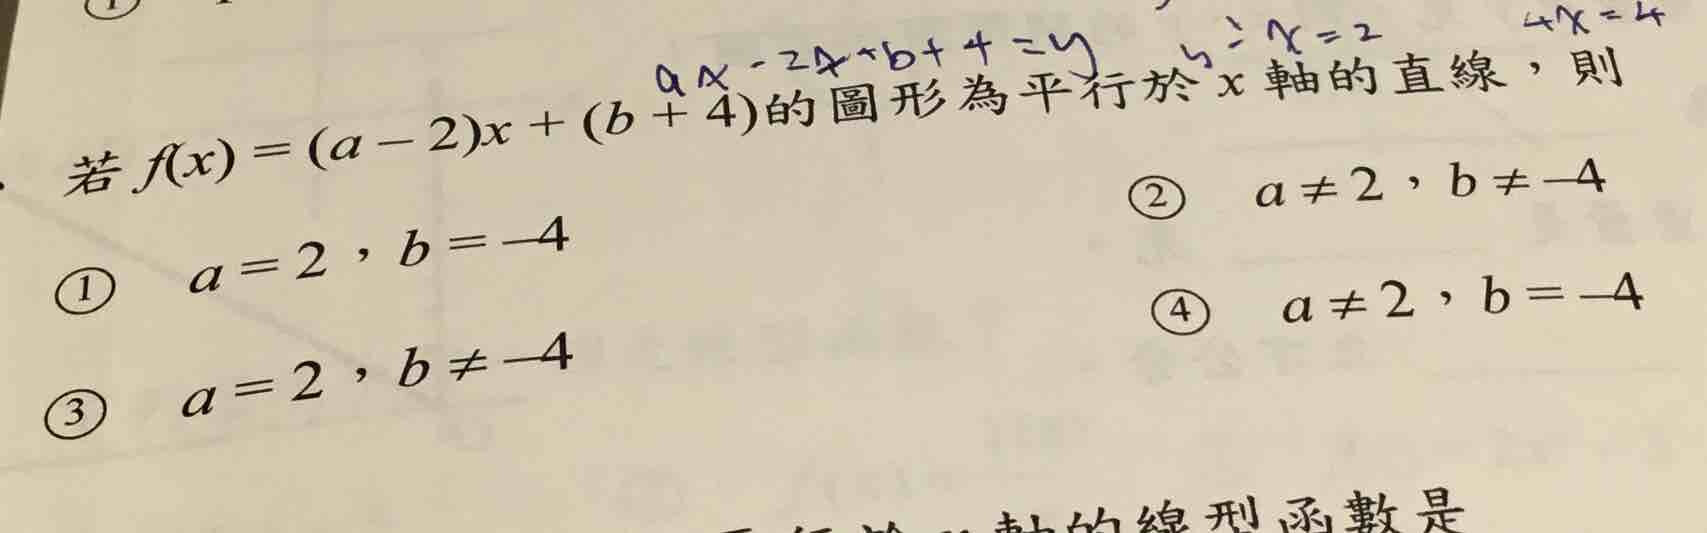 ax - 2x + b + 4 = y
x = 2
4x = 4
若 f(x) = (a – 2)x + (b + 4)的圖形為平行於 x 軸的直線，則
① a = 2，b = –4
② a ≠ 2，b ≠ –4
③ a = 2，b ≠ –4
④ a ≠ 2，b = –4
軸的線型函數是